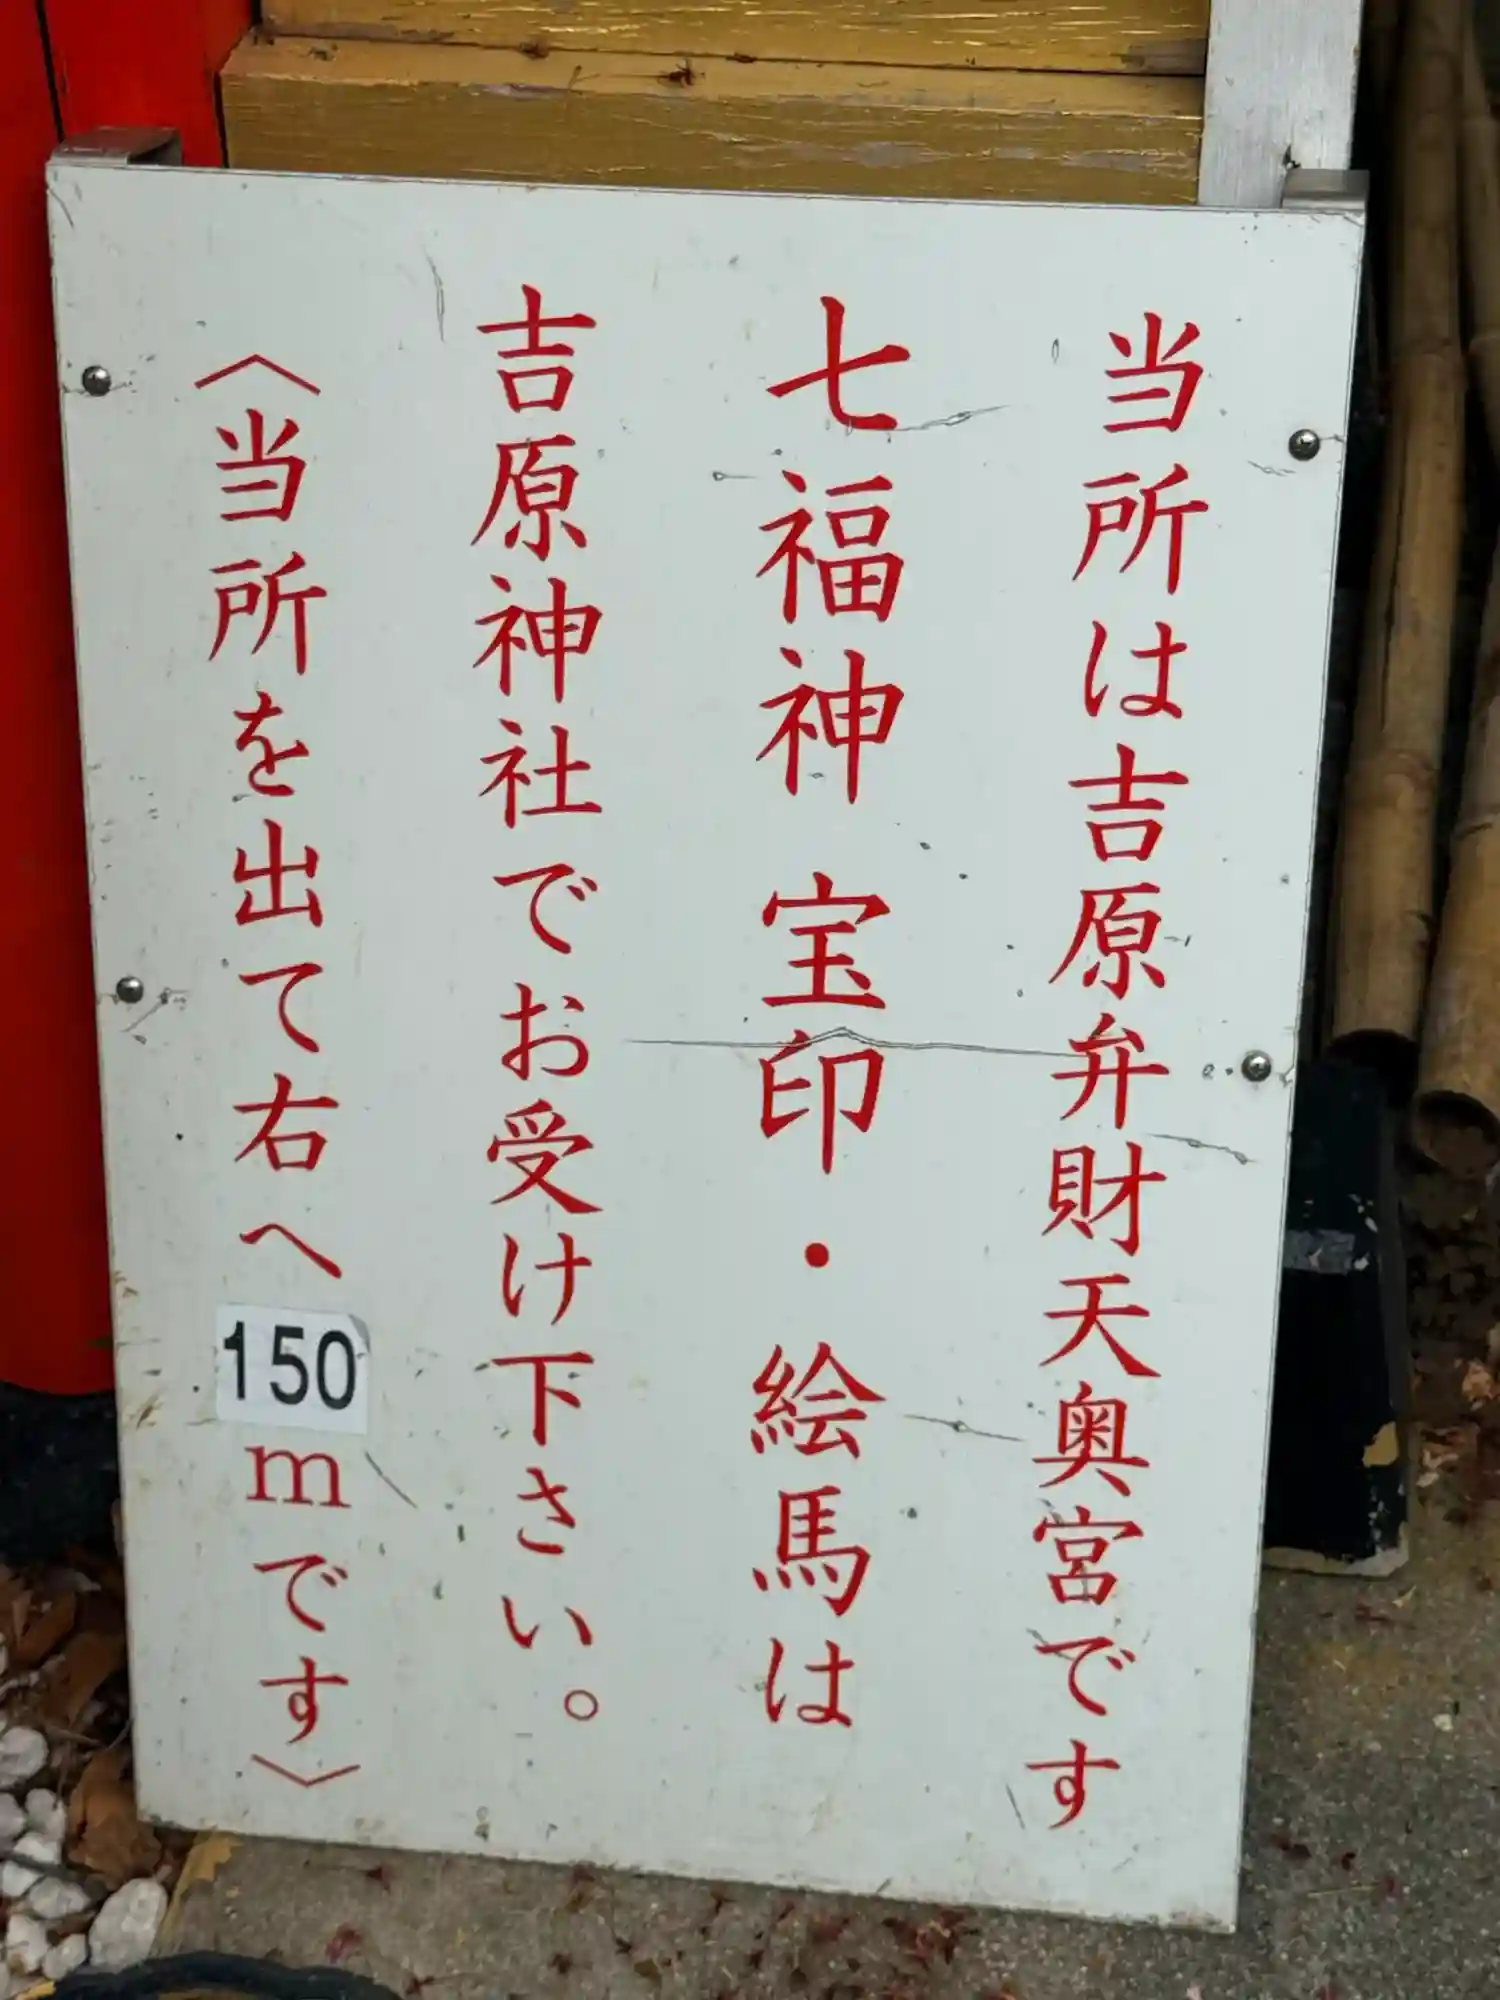 当所は吉原弁財天奥宮です
七福神 宝印・絵馬は
吉原神社でお受け下さい。
〈当所を出て右へ150mです〉